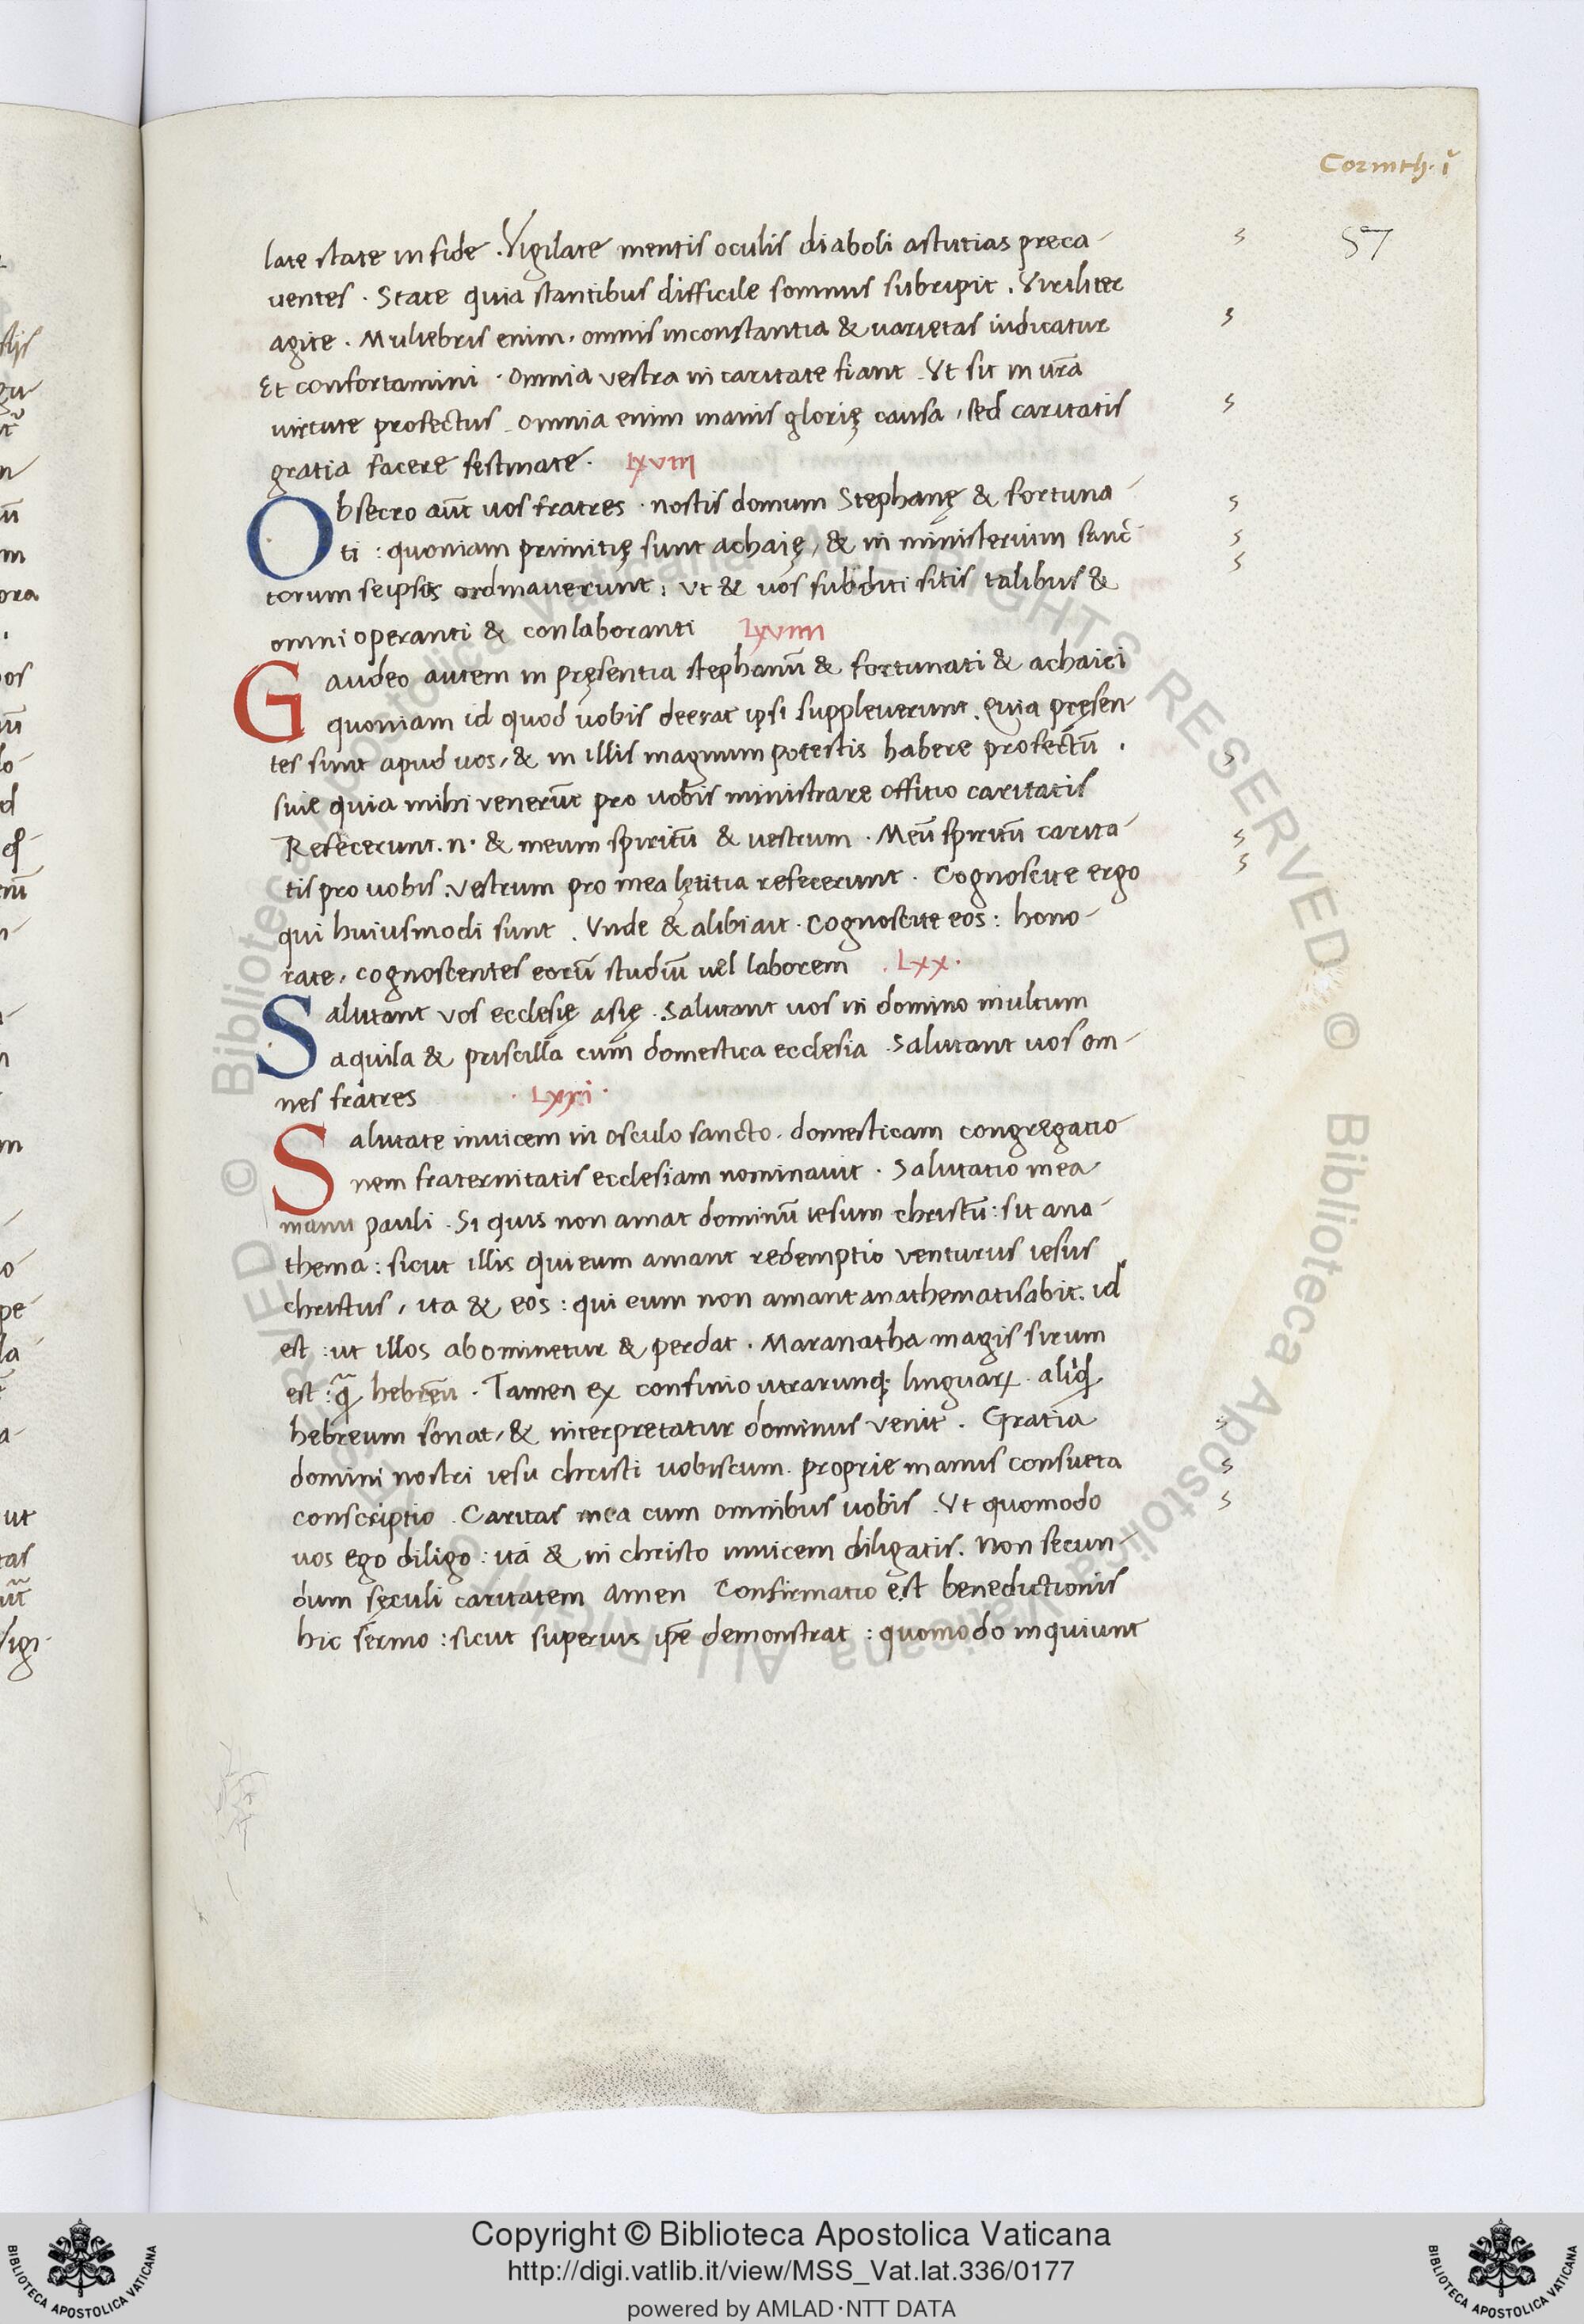 Corinth. i
57
late state in fide . Vigilate mentis oculis diaboli astutias preca-
uentes . State quia stantibus difficile somnus subripit . Viriliter
agite . Muliebris enim . omnis inconstantia & uarietas iudicatur
Et confortamini . omnia vestra in caritate fiant . Vt sit in ur̄a
uirtute profectus . omnia enim inanis glorię causa , sed caritatis
gratia facere festinate . lxviii
Obsecro aūt uos fratres . nostis domum Stephanę & fortuna-
ti : quoniam primitię sunt achaię , & in ministerium sanc̄
torum seipsos ordinauerunt : vt & uos subditi sitis talibus &
omni operanti & conlaboranti lxviiii
Gaudeo autem in pręsentia stephanū & fortunati & achaici
quoniam id quod uobis deerat ipsi suppleuerunt . Quia pręsen-
tes sunt apud uos , & in illis magnum potestis habere profectū .
siue quia mihi venerūt pro uobis ministrare offitio caritatis
Refecerunt . n . & meum spiritū & vestrum . Meū spiritū carita-
tis pro uobis : vestrum pro mea lętitia refecerunt . Cognoscite ergo
qui huiusmodi sunt . Vnde & alibi ait . Cognoscite eos : hono-
rate , cognoscentes eorū studiū uel laborem . Lxx .
Salutant vos ecclesię asię . Salutant uos in domino multum
aquila & priscilla cum domestica ecclesia . Salutant uos om-
nes fratres . Lxxi .
Salutate inuicem in osculo sancto . domesticam congregatio
nem fraternitatis ecclesiam nominauit . Salutatio mea
manu pauli . Si quis non amat dominū iesum christū : sit ana-
thema : sicut illis qui eum amant redemptio venturus iesus
christus , ita & eos : qui eum non amant anathematisabit . id
est : ut illos abominetur & perdat . Maranatha magis sirum
est : q̄ hebreū . Tamen ex confinio utrarunq; linguarꝝ . aliqd̄
hebreum sonat , & interpretatur dominus venit . Gratia
domini nostri iesu christi uobiscum . proprie manus consueta
conscriptio . Caritas mea cum omnibus uobis . Vt quomodo
uos ego diligo : ita & in christo inuicem diligatis . Non secun-
dum sęculi caritatem amen Confirmatio est benedictionis
hic sermo : sicut superius ip̄e demonstrat : quomodo inquiunt
Copyright © Biblioteca Apostolica Vaticana
http://digi.vatlib.it/view/MSS_Vat.lat.336/0177
powered by AMLAD·NTT DATA